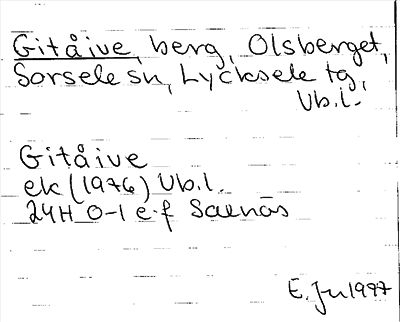 Gitåive, berg, Olsberget,
Sorsele sn, Lycksele tg,
Vb.l.
Gitåive
ek (1976) Vb.l.
24H 0-1 e-f Saenås
E. Ju 1997